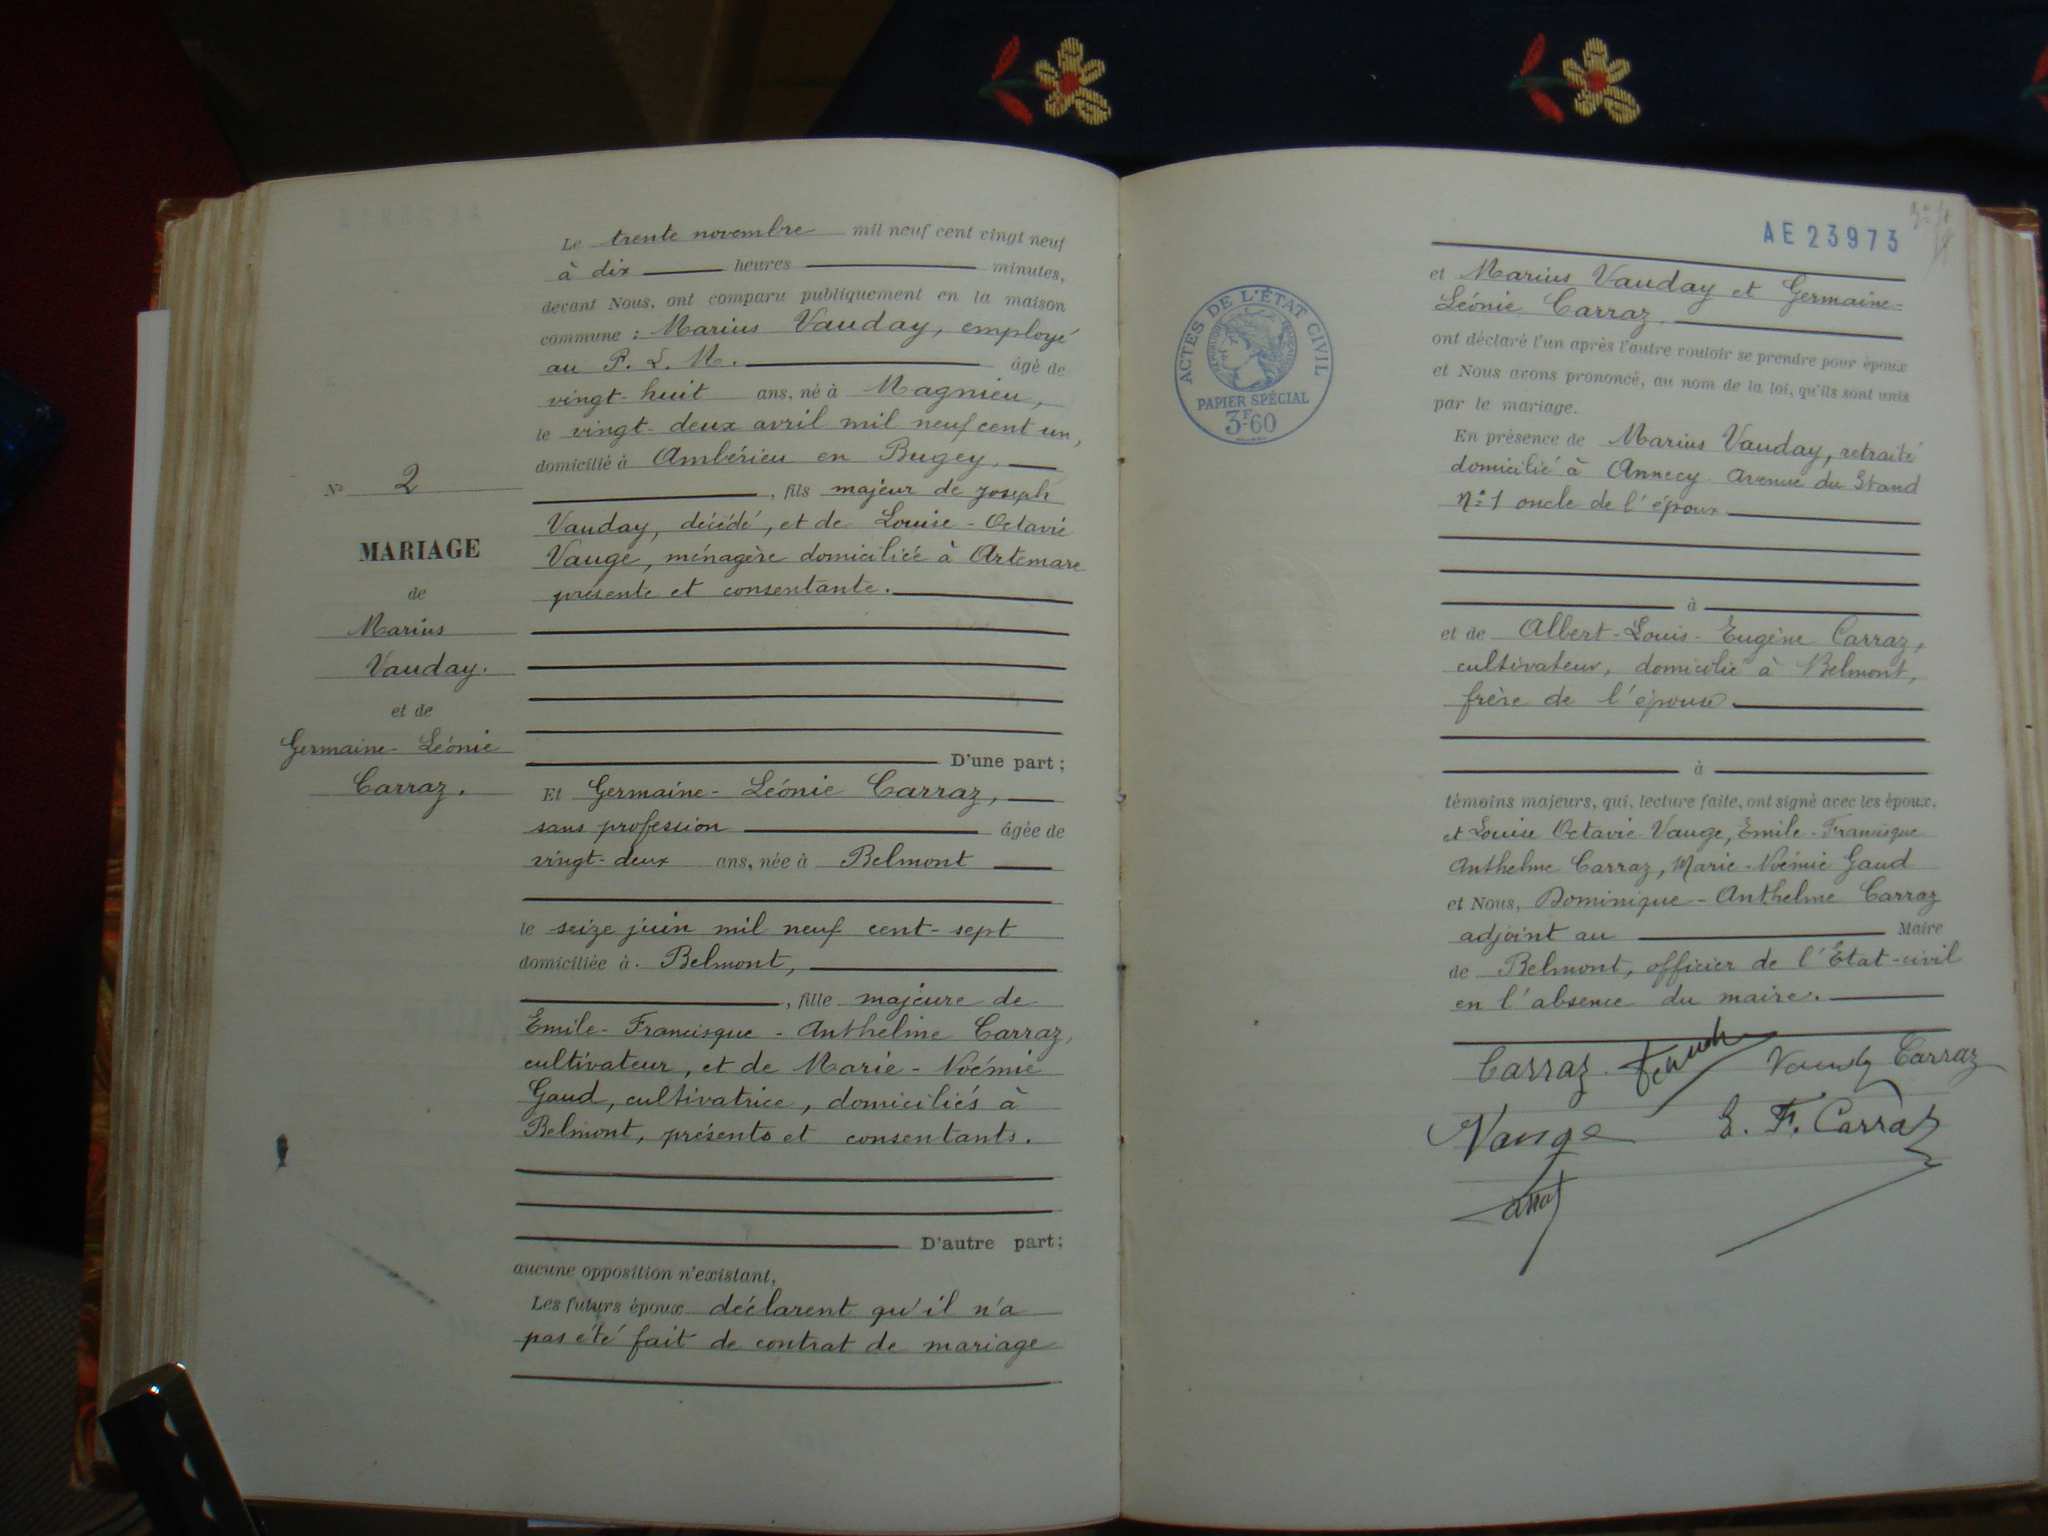 Le trente novembre mil neuf cent vingt neuf
à dix heures minutes,
devant Nous, ont comparu publiquement en la maison
commune : Marius Vauday, employé
au P. L. M. âgé de
vingt-huit ans, né à Magnieu,
le vingt-deux avril mil neuf cent un,
domicilié à Ambérieu en Bugey,
, fils majeur de Joseph
Vauday, décédé, et de Louise-Octavie
Vauge, ménagère domiciliée à Artemare
présente et consentante.
D'une part ;
Et Germaine-Léonie Carraz,
sans profession âgée de
vingt-deux ans, née à Belmont
le seize juin mil neuf cent-sept
domiciliée à Belmont,
, fille majeure de
Emile-Francisque-Anthelme Carraz,
cultivateur, et de Marie-Noémie
Gaud, cultivatrice, domiciliés à
Belmont, présents et consentants.
D'autre part ;
aucune opposition n'existant,
Les futurs époux déclarent qu'il n'a
pas été fait de contrat de mariage
No 2
MARIAGE
de
Marius
Vauday.
et de
Germaine-Léonie
Carraz.
AE 23973
ACTES DE L'ÉTAT CIVIL
RÉPUBLIQUE FRANÇAISE
PAPIER SPÉCIAL
3F.60
et Marius Vauday et Germaine-
Léonie Carraz.
ont déclaré l'un après l'autre vouloir se prendre pour époux
et Nous avons prononcé, au nom de la loi, qu'ils sont unis
par le mariage.
En présence de Marius Vauday, retraité
domicilié à Annecy Avenue du Stand
No 1 oncle de l'époux
à
et de Albert-Louis-Eugène Carraz,
cultivateur, domicilié à Belmont,
frère de l'épouse
à
témoins majeurs, qui, lecture faite, ont signé avec les époux,
et Louise Octavie Vauge, Emile-Francisque
Anthelme Carraz, Marie-Noémie Gaud
et Nous, Dominique-Anthelme Carraz
adjoint au Maire
de Belmont, officier de l'Etat-civil
en l'absence du maire.
Carraz Vauday Carraz
Vauge E. F. Carraz